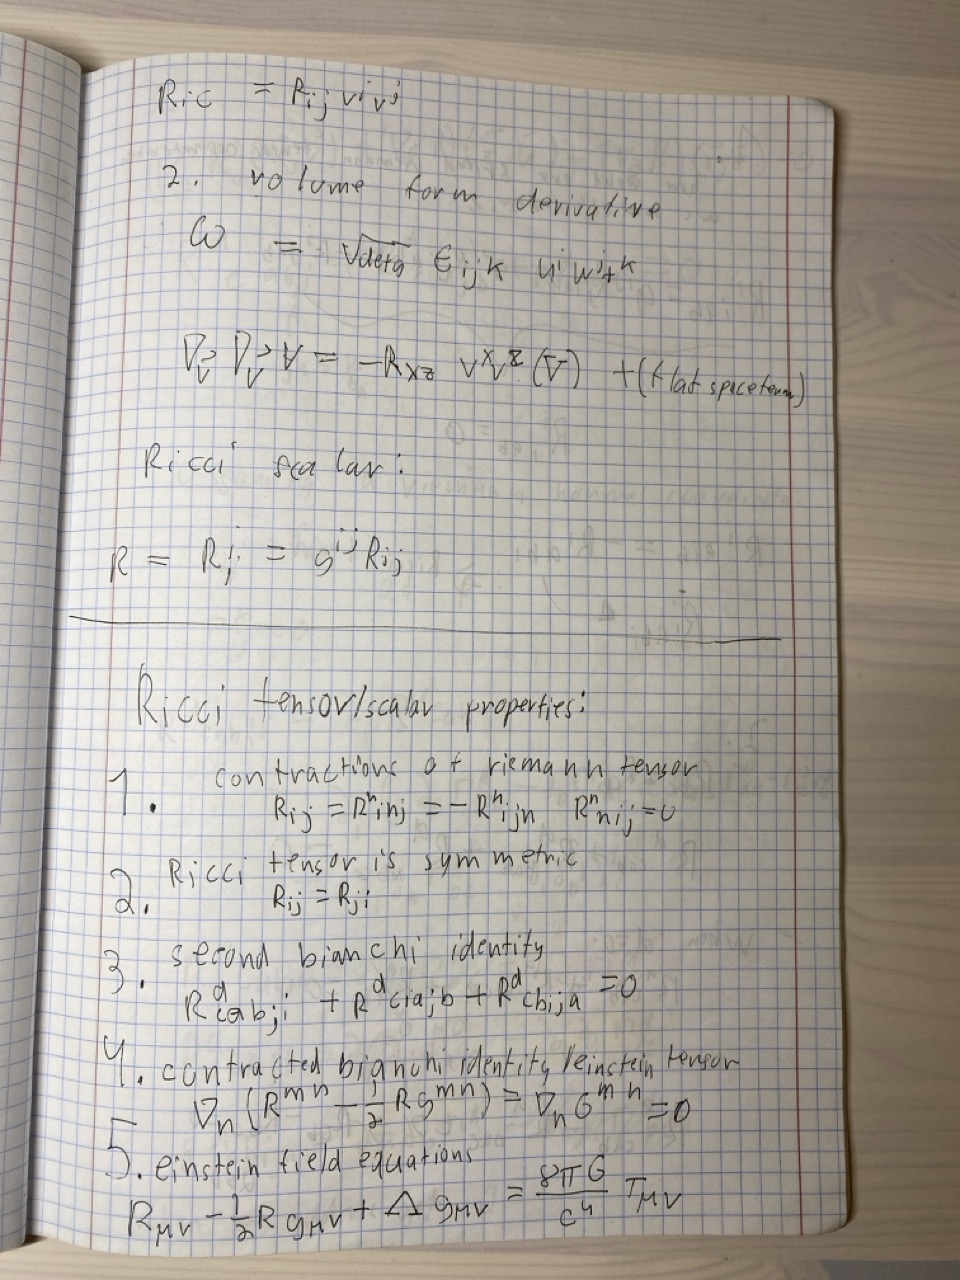 Ric = Rij vivj
2. volume form derivative
ω = √detg ϵijk uiwjtk
∇v⃗ ∇v⃗ V = -Rxz vxvz (V) + (flat space term)
Ricci scalar:
R = Rjj = gij Rij
Ricci tensor/scalar properties:
1. contractions of riemann tensor
Rij = Rninj = -Rnijn Rnnij = 0
2. Ricci tensor is symmetric
Rij = Rji
3. second bianchi identity
Rdcab;i + Rdcia;b + Rdcbi;a = 0
4. contracted bianchi identity / einstein tensor
∇n (Rmn - 1/2 Rgmn) = ∇n Gmn = 0
5. einstein field equations
Rμν - 1/2 R gμν + Λ gμν = 8πG/c4 Tμν